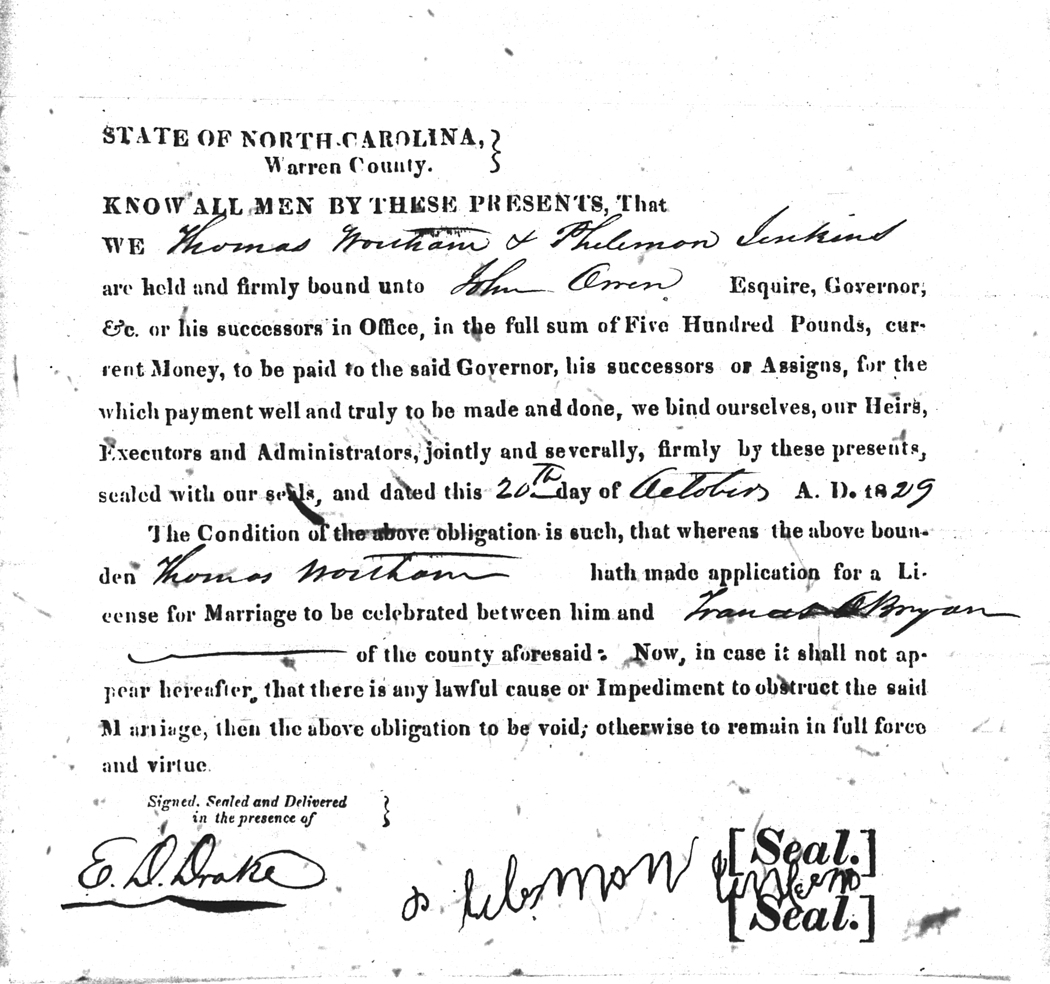 STATE OF NORTH-CAROLINA,
Warren County.
KNOW ALL MEN BY THESE PRESENTS, That
WE Thomas Wortham & Philemon Jenkins
are held and firmly bound unto John Owen Esquire, Governor,
&c. or his successors in Office, in the full sum of Five Hundred Pounds, cur-
rent Money, to be paid to the said Governor, his successors or Assigns, for the
which payment well and truly to be made and done, we bind ourselves, our Heirs,
Executors and Administrators, jointly and severally, firmly by these presents,
sealed with our seals, and dated this 20th day of October A. D. 1829
The Condition of the above obligation is such, that whereas the above boun-
den Thomas Wortham hath made application for a Li-
cense for Marriage to be celebrated between him and Frances OBryan
of the county aforesaid: Now, in case it shall not ap-
pear hereafter, that there is any lawful cause or Impediment to obstruct the said
Marriage, then the above obligation to be void; otherwise to remain in full force
and virtue.
Signed, Sealed and Delivered
in the presence of
E. D. Drake
[Seal.]
[Seal.]